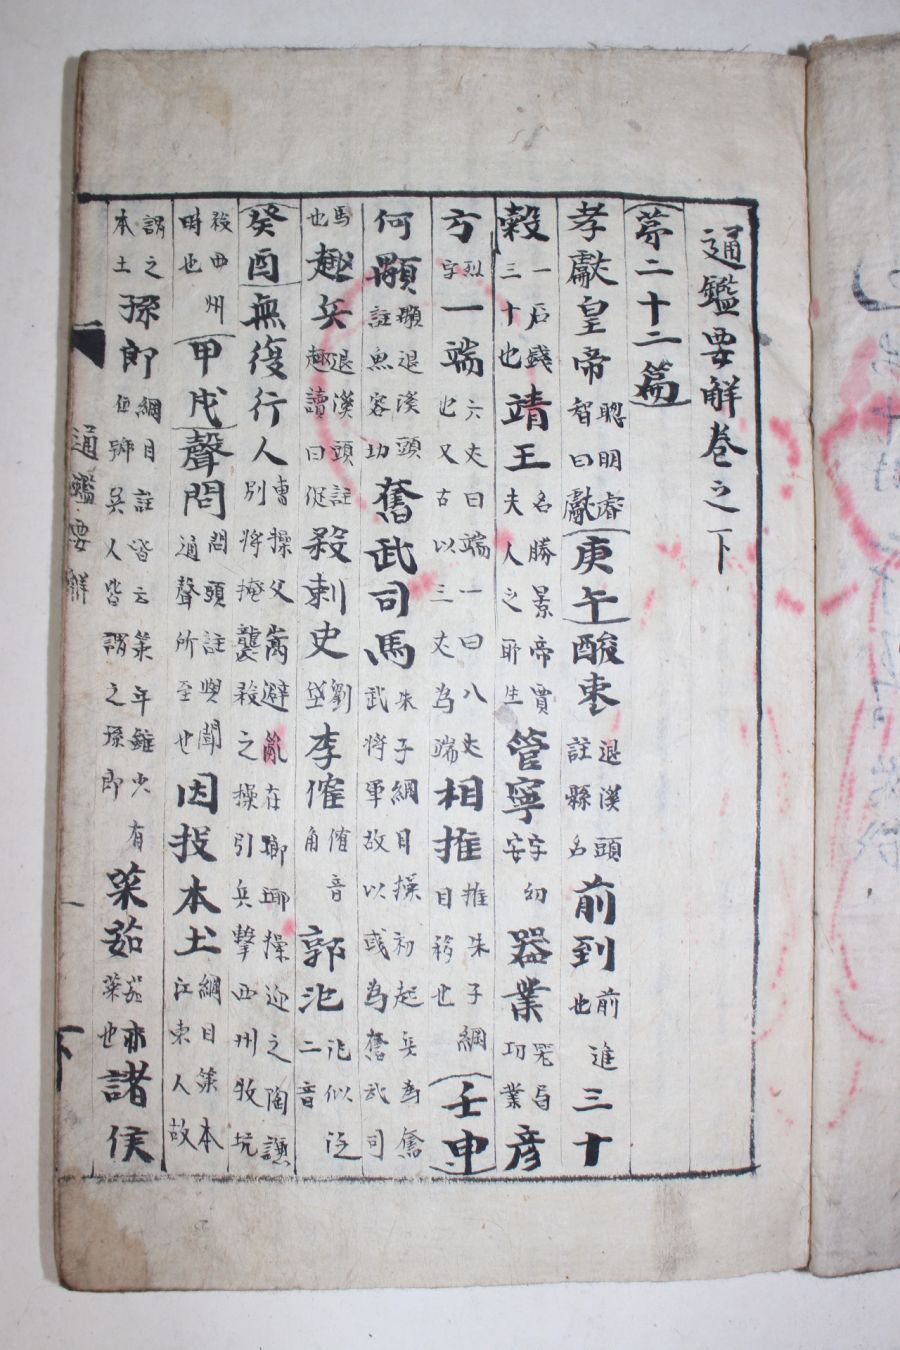 通鑑要解卷之下
第二十二篇
孝獻皇帝聰明睿智曰獻庚午酸棗退漢頭註縣名前到前進也三十
穀一后践三十也靖王名勝景帝賈夫人之所生管寧字幼安器業器局功業彦
方字烈一端六丈曰端一曰八丈也又古以三丈為端相推推朱子綱目移也壬申
何顒顒退漢頭註魚容功奮武司馬朱子綱目操初起兵為奮武將軍故以彧為奮武司
馬也趣兵退漢頭註趣讀曰促殺刺史劉岱李傕傕音角郭汜汜似泛二音
癸酉無復行人曹操父嵩避亂在瑯琊操迎之陶謙別將掩襲殺之操引兵擊西州牧坑
殺西州時也甲戌聲問問頭註與聞通聲所至也因投本土綱目策本江東人故
謂之本土孫郎綱目註皆云策年雖少有位號吳人皆謂之孫郎菜茹茹亦菜也諸侯
通鑑要解
下